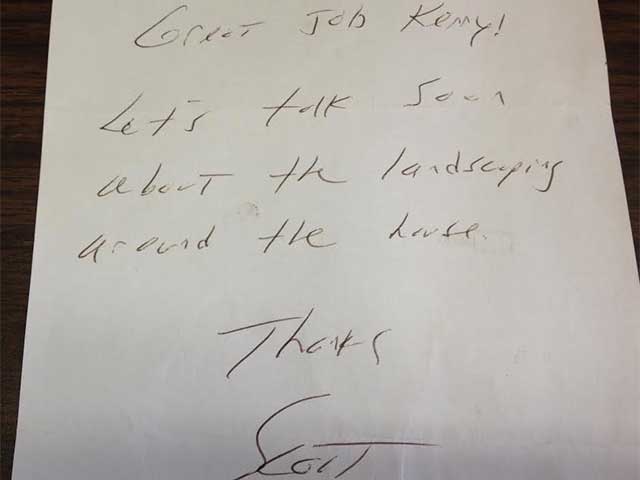 Great Job Kenny!
Let's talk soon
about the landscaping
around the house.
Thanks
Scott